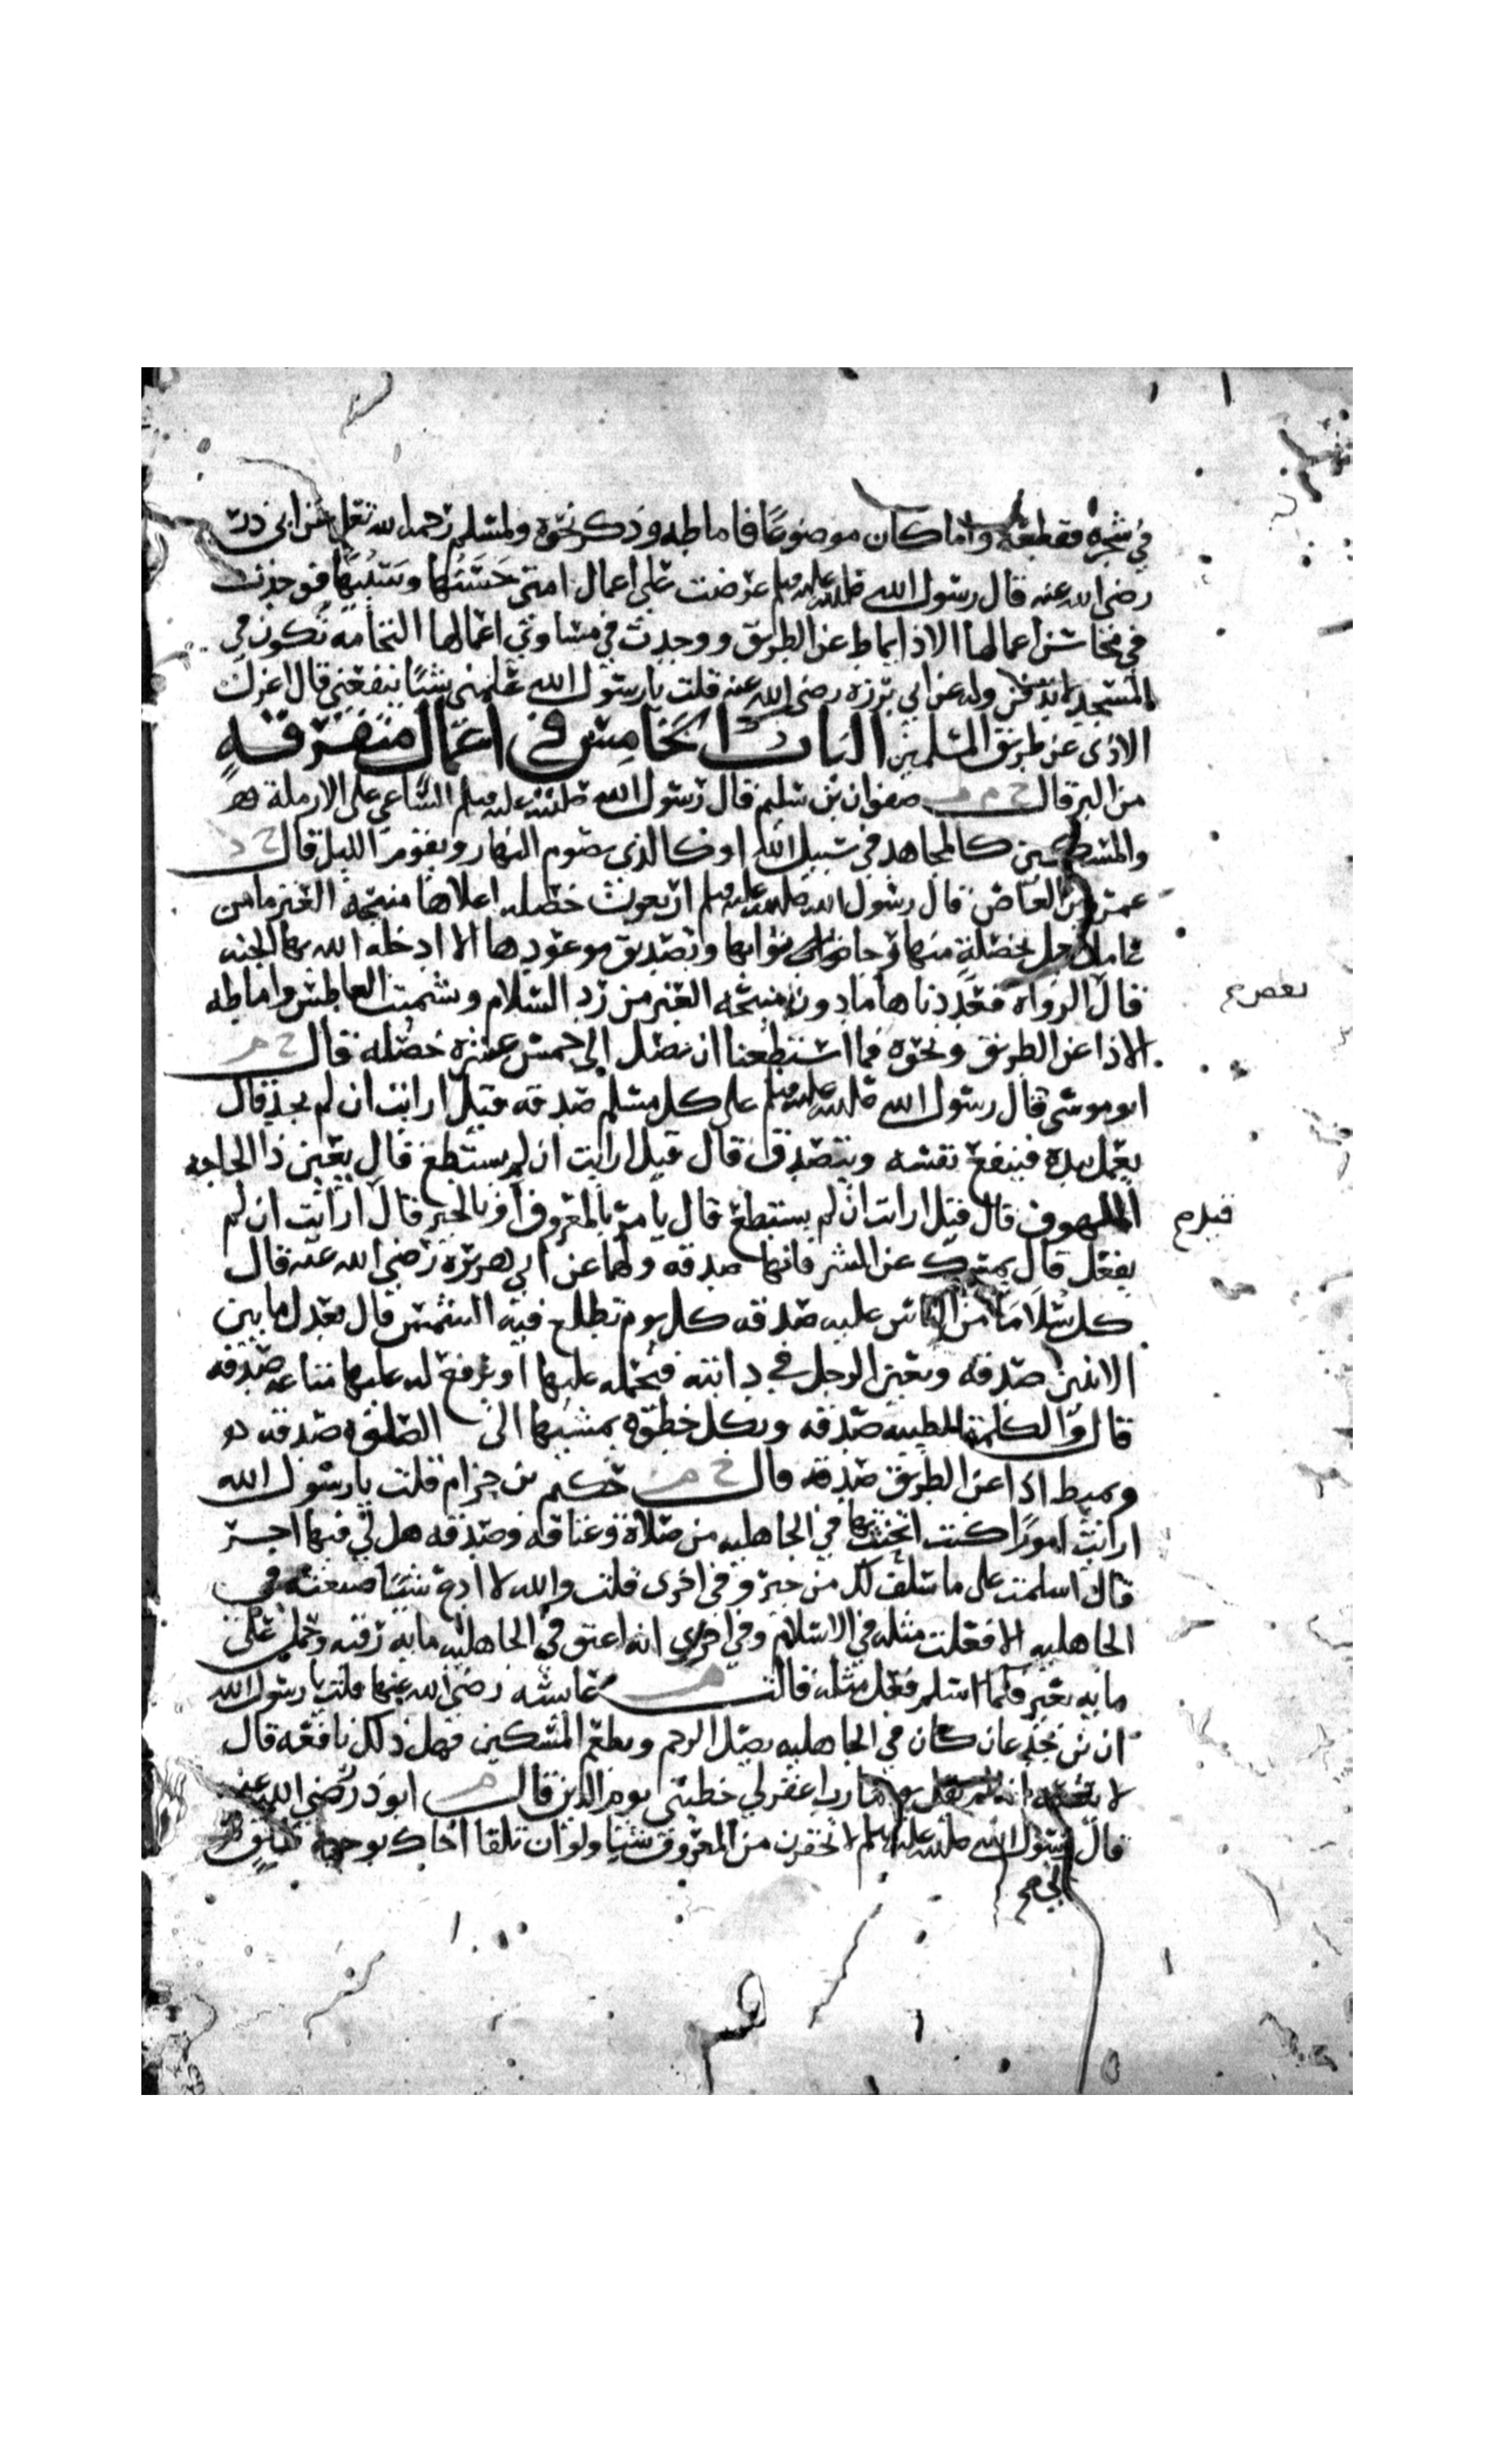 في شجره فقطعه واما كان موضوعا فاماطه وذكر نحوه ولمسلم رحمه الله تعلى عن ابي ذر
رضي الله عنه قال رسول الله صلى الله عليه وسلم عرضت علي اعمال امتي حسنها وسيئها فوجدت
في محاسن اعمالها الاذا يماط عن الطريق ووجدت في مساوئ اعمالها النخامه تكون في
المسجد لا تدفن وله عن ابي برزه رضي الله عنه قلت يا رسول الله علمني شيئا ينفعني قال اعزل
الاذى عن طريق المسلمين الباب الخامس في اعمال متفرقة
من البر قال خ م صفوان بن سليم قال رسول الله صلى الله عليه وسلم الساعي على الارملة
والمسكين كالمجاهد في سبيل الله او كالذي يصوم النهار ويقوم الليل قال خ د
عمرو بن العاص قال رسول الله صلى الله عليه وسلم اربعون خصله اعلاها منيحة العنز ما من
عامل يعمل بخصلة منها رجا ثوابها وتصديق موعودها الا ادخله الله بها الجنه
قال الرواه فعددنا ها ما دون منيحه العنز من رد السلام وتشميت العاطس واماطه
الاذا عن الطريق ونحوه فما استطعنا ان نصل الى خمس عشره خصله قال خ م
ابو موسى قال رسول الله صلى الله عليه وسلم على كل مسلم صدقه قيل ارايت ان لم يجد قال
يعمل بيده فينفع نفسه ويتصدق قال قيل ارايت ان لم يستطع قال يعين ذا الحاجه
الملهوف قال قيل ارايت ان لم يستطع قال يامر بالمعروف او بالخير قال ارايت ان لم
يفعل قال يمسك عن الشر فانها صدقه ولهما عن ابي هريره رضي الله عنه قال
كل سلاما من الناس عليه صدقه كل يوم تطلع فيه الشمس قال تعدل ما بين
الاثنين صدقه وتعين الرجل في دابته فتحمله عليها او ترفع له عليها متاعه صدقه
قال والكلمة الطيبه صدقه وبكل خطوه يمشيها الى الصلوه صدقه
ويميط اذا عن الطريق صدقه قال خ م حكيم بن حزام قلت يا رسول الله
ارايت امورا كنت اتحنث بها في الجاهليه من صلاة وعتاقه وصدقه هل لي فيها اجر
قال اسلمت على ما سلف لك من خير وفي اخرى قلت والله لا ادع شيئا صنعته في
الجاهليه الا فعلت مثله في الاسلام وفي اخرى انه اعتق في الجاهليه مايه رقبه وحمل على
مايه بعير فلما اسلم فعل مثله قالت م عايشه رضي الله عنها قلت يا رسول الله
ان بن جدعان كان في الجاهليه يصل الرحم ويطعم المسكين فهل ذلك نافعه قال
لا ينفعه انه لم يقل يوما رب اغفر لي خطيتي يوم الدين قال م ابو ذر رضي الله عنه
قال رسول الله صلى الله عليه وسلم لا تحقرن من المعروف شيا ولو ان تلقا اخاك بوجه طليق